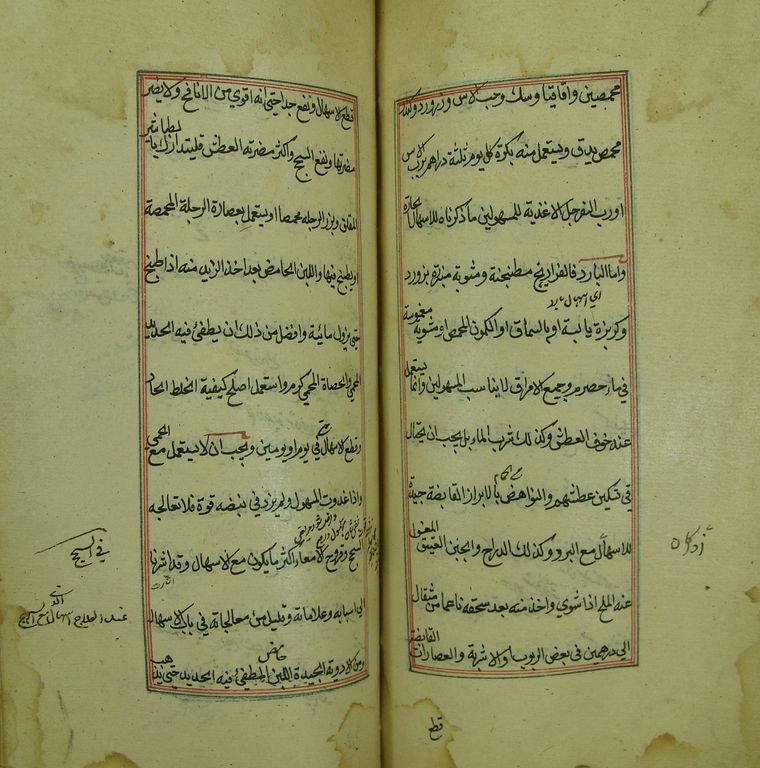 محمصين واقاقيا وسك وحب الاس وبزر ورد وكندر
محمص يدق ويستعمل منه بكرة كل يوم ثلثة دراهم برب الاس
او رب السفرجل الاغذية للمسهولين ما ذكرناه للاسهال لحارة
واما البارد فالفراريج مطبخة ومشوية مبزرة بزورد
اي اسهال بارد
وكزبرة يابسة او بالسماق او الكمون المحمص او مشوية مغموسة
في ماء حصرم وجميع الامراق لا يناسب المسهولين وانما يستعمل
عند خوف العطش وكذلك شرب الماء بل يجب ان يحتال
في تسكين عطشهم والنواهض بالابزار القابضة جيدة
للاسهال مع البرد وكذلك الدراج والجبن العتيق المغسول
عنه الملح اذا شوي واخذ منه بعد سحقه ناعما من مثقال
الي درهمين في بعض الربوب او الاشربة والعصارات القابضة
قطع
قطع الاسهال ونفع جدا حتي انه اقوي من الانافح ولا يضر
مضرتها ونفع السحج واكثر مضرته العطش فليتدارك بالطباشير
المقلي وبزر الرجلة محمصا او يستعمل بعصارة الرجلة المحمصة
او يطبخ فيها واللبن الحامض بعد اخذ الزبد منه اذا طبخ
حتي يزول مائيته وافضل من ذلك ان يطفئ فيه الحديد
المحمي والحصاة المحمي كرم واستعمل اصلح كيفية الخلط الحاد
وقطع الاسهال في يوم او يومين ويجب ان لا يستعمل مع الحمي
واذا غدوت المسهول ولم يزد في نبضه قوة فلا تعالجه
سحج وقروح الامعاء اكثر ما يكون مع الاسهال وقد اشرنا
الي اسبابه وعلاماته وقليل من معالجاته في باب الاسهال
ومن الادوية الجيدة اللبن الحامض المطفئ فيه الحديد حتي يذهب
في السحج